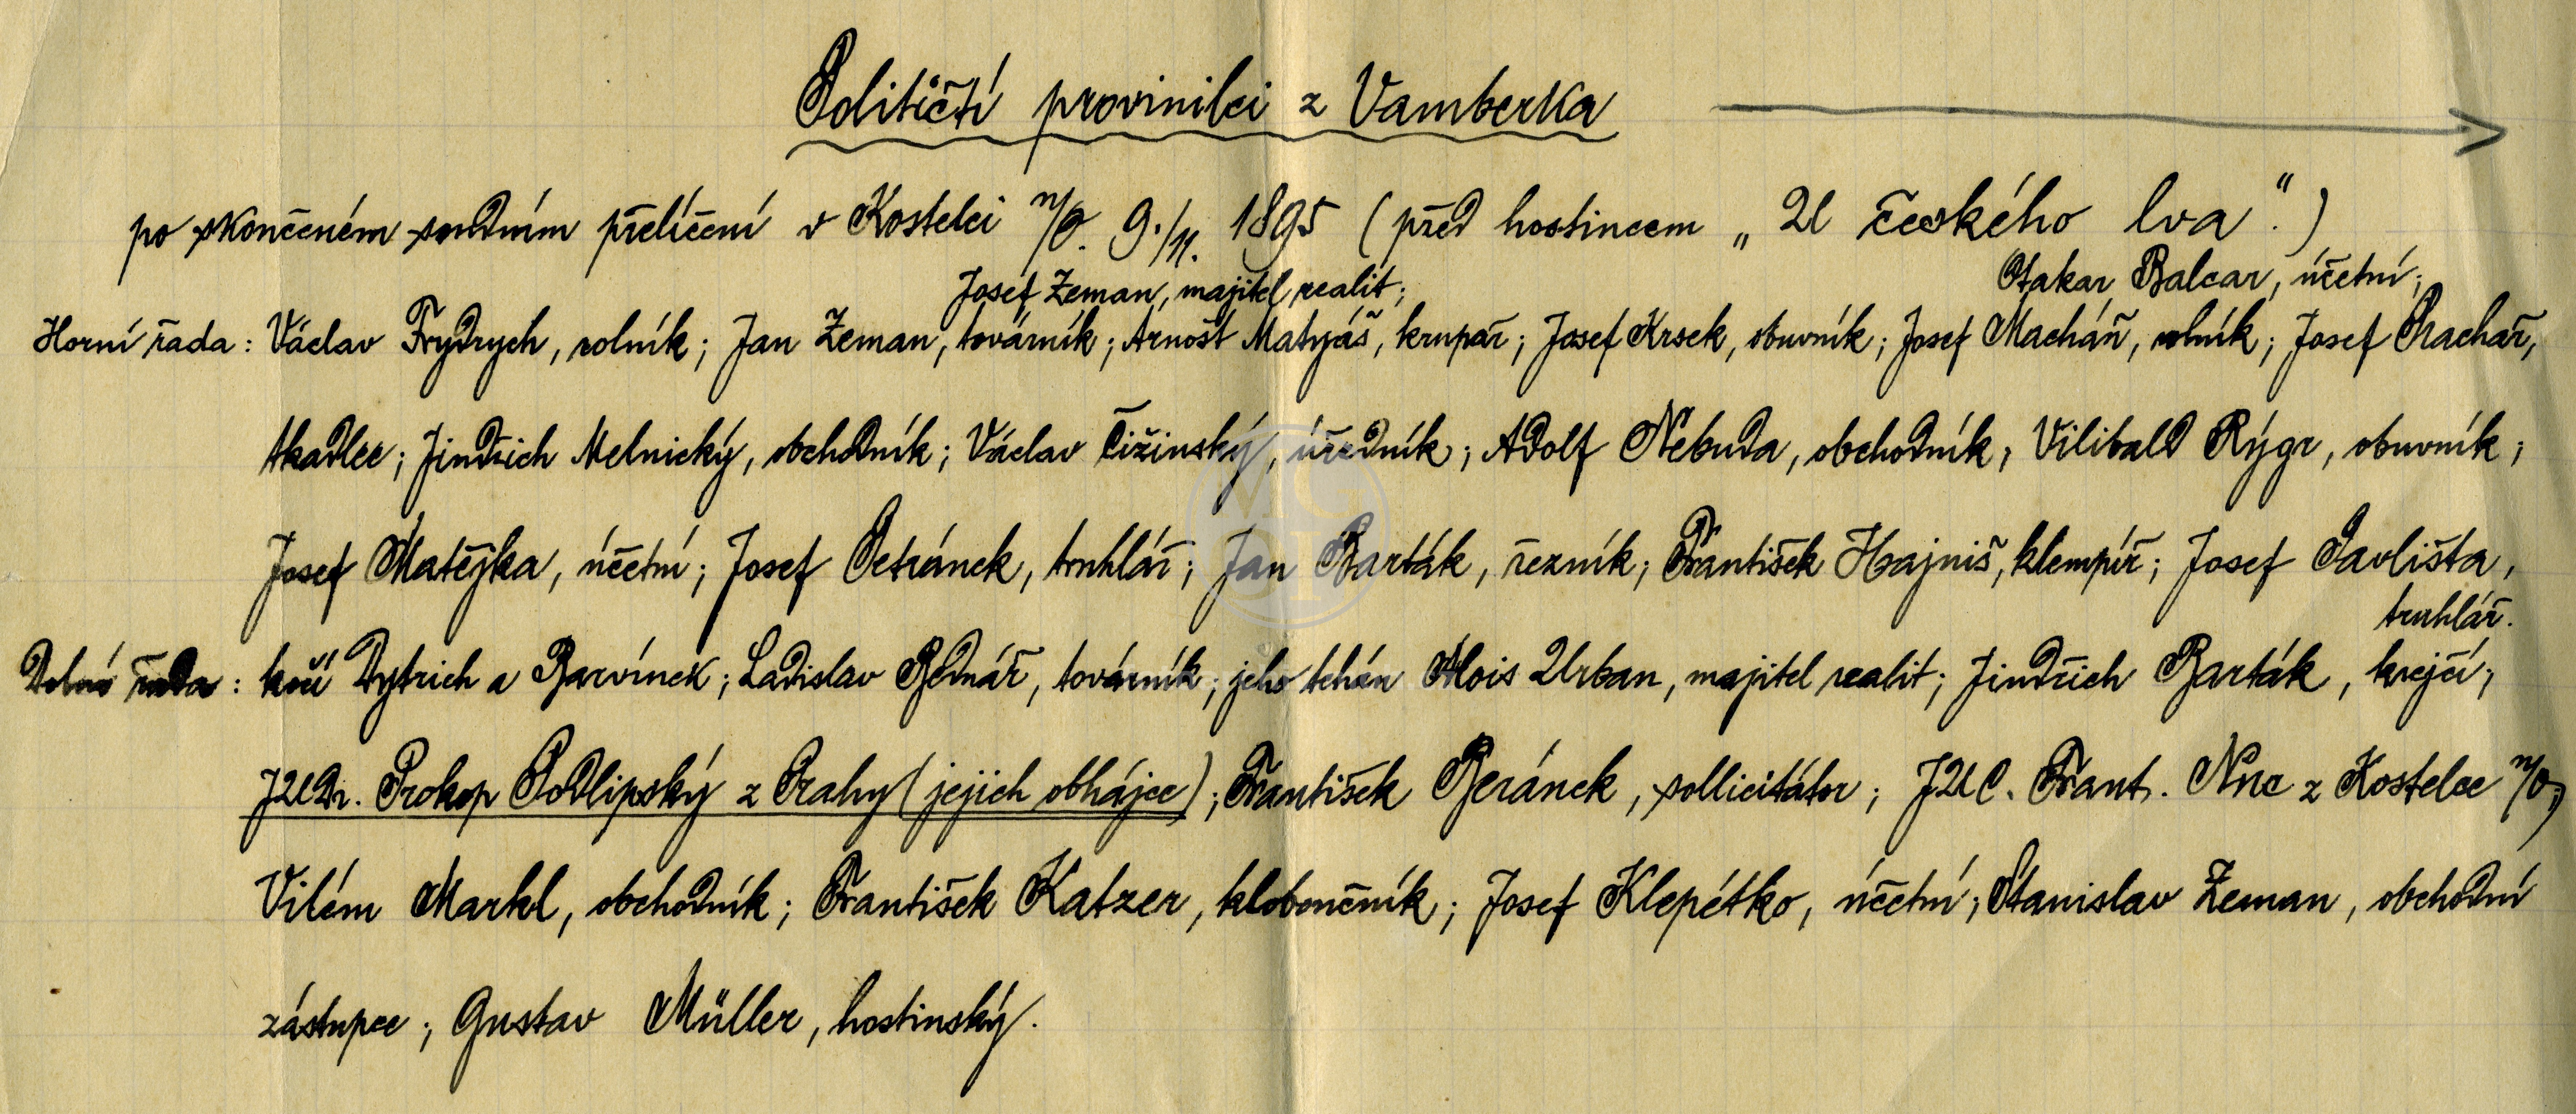 Političtí provinilci z Vamberka
po skončeném soudním přelíčení v Kostelci n/O. 9./11. 1895 (před hostincem „U českého lva“.)
Josef Zeman, majitel realit; Otakar Balcar, účetní;
Horní řada: Václav Frydrych, rolník; Jan Zeman, továrník; Arnošt Matyáš, krupař; Josef Krsek, obuvník; Josef Macháň, rolník; Josef Prachař,
tkadlec; Jindřich Melnický, obchodník; Václav Čižinský, úředník; Adolf Nebuda, obchodník; Vilibald Rýgr, obuvník;
Josef Matějka, účetní; Josef Petránek, truhlář; Jan Barták, řezník; František Hajniš, klempíř; Josef Pavlišta,
truhlář.
Dolní řada: kočí Dytrich a Barvínek; Ladislav Bednář, továrník; jeho tchán Alois Urban, majitel realit; Jindřich Barták, krejčí;
JUDr. Prokop Podlipský z Prahy (jejich obhájce); František Beránek, sollicitátor; JUC. Frant. Nnc z Kostelce n/O;
Vilém Markl, obchodník; František Katzer, kloboučník; Josef Klepétko, účetní; Stanislav Zeman, obchodní
zástupce; Gustav Müller, hostinský.